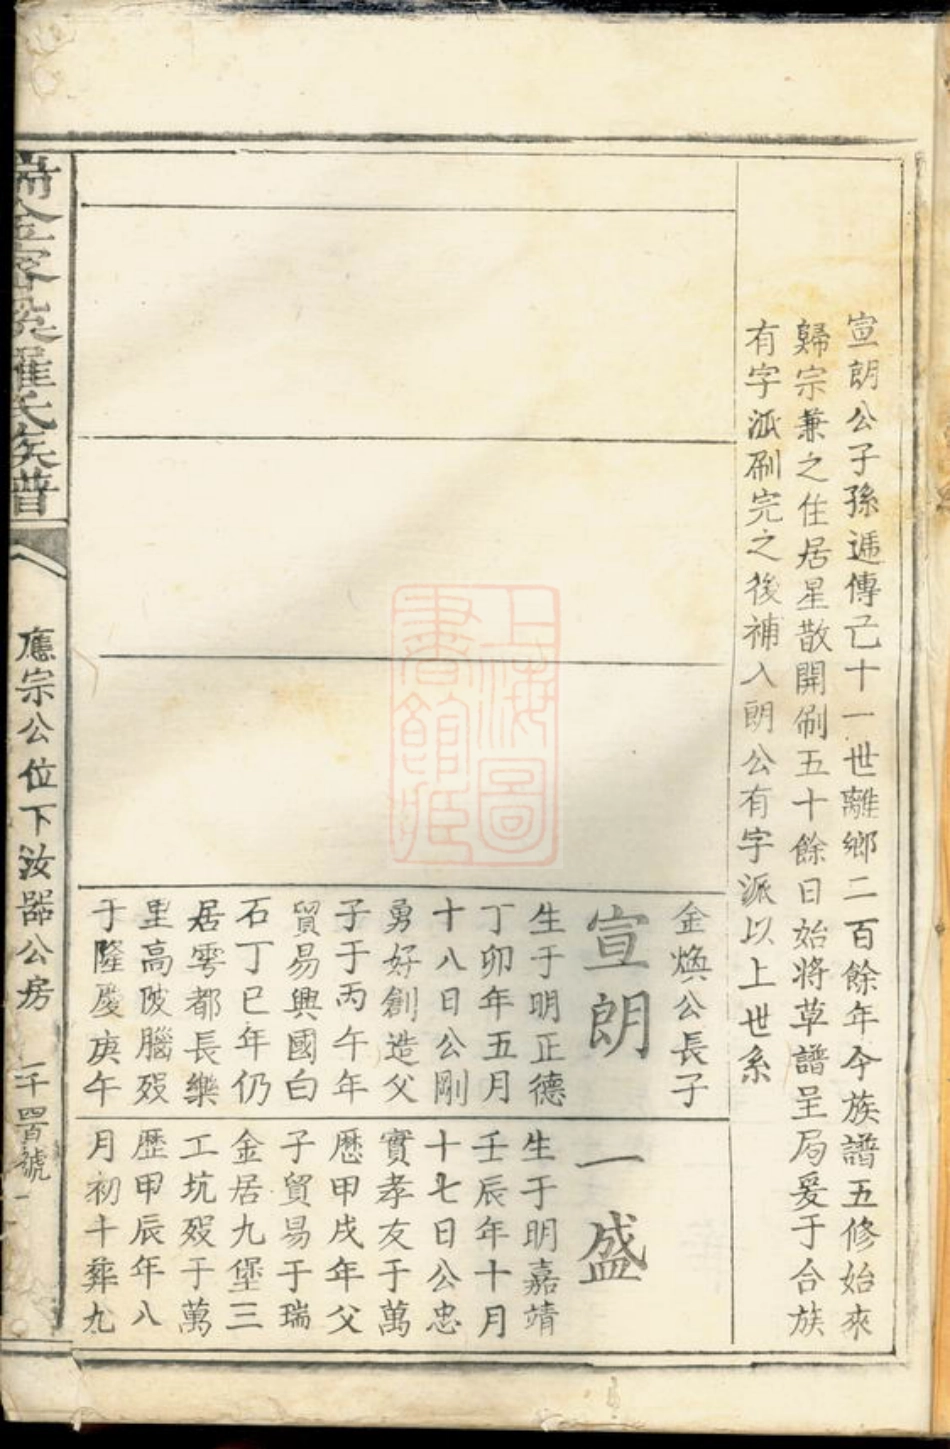 宣朗公子孫遞傳已十一世離鄉二百餘年今族譜五修始來
歸宗兼之住居星散開刷五十餘日始將草譜呈局爰于合族
有字派刷完之後補入朗公有字派以上世系
金煥公長子
宣朗
生于明正德
丁卯年五月
十八日公剛
勇好創造父
子于丙午年
貿易興國白
石丁巳年仍
居雩都長樂
里高陂腦歿
于隆慶庚午
一盛
生于明嘉靖
壬辰年十月
十七日公忠
實孝友于萬
歷甲戌年父
子貿易于瑞
金居九堡三
工坑歿于萬
歷甲辰年八
月初十葬九
瑞金密溪羅氏族譜
應宗公位下汝器公房
一千四百號
上海圖
書館藏